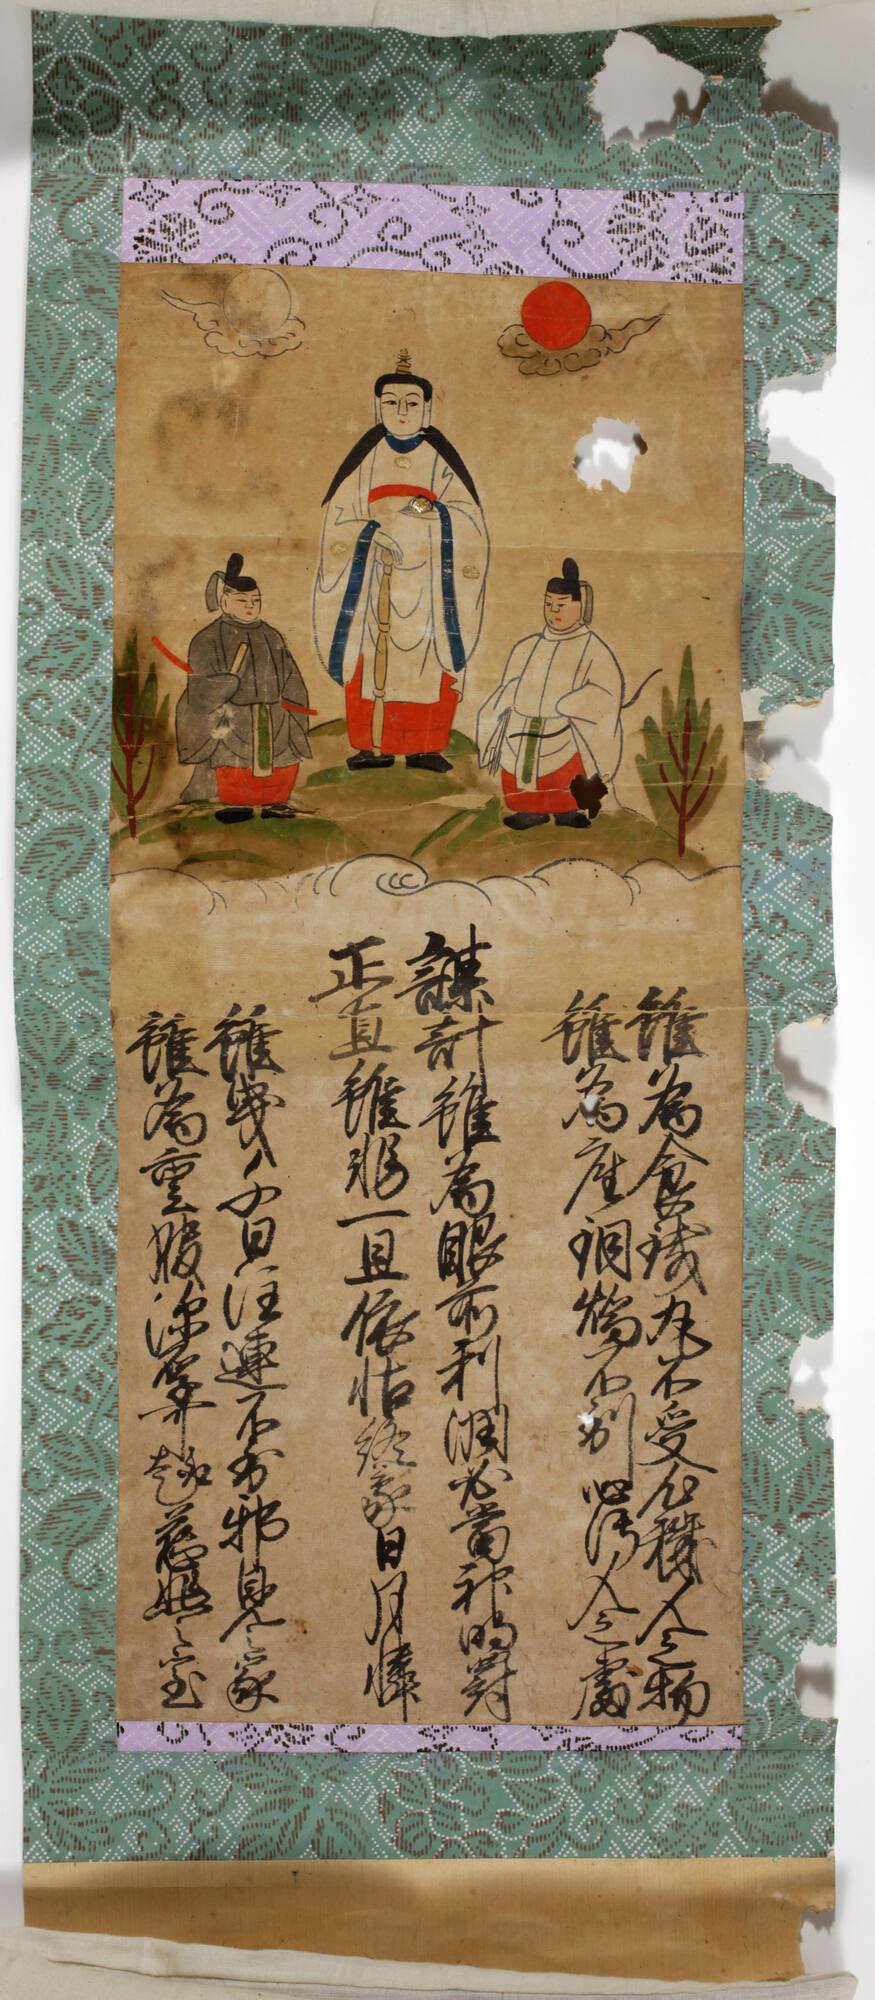 雖為食鉄丸不受心穢人之物
雖為座銅焔不到心濁人之處
謀計雖為眼前利潤必當神明罸
正直雖非一旦依怙終蒙日月憐
雖曳千日注連不到邪見之家
雖為重服深厚趣慈悲之室